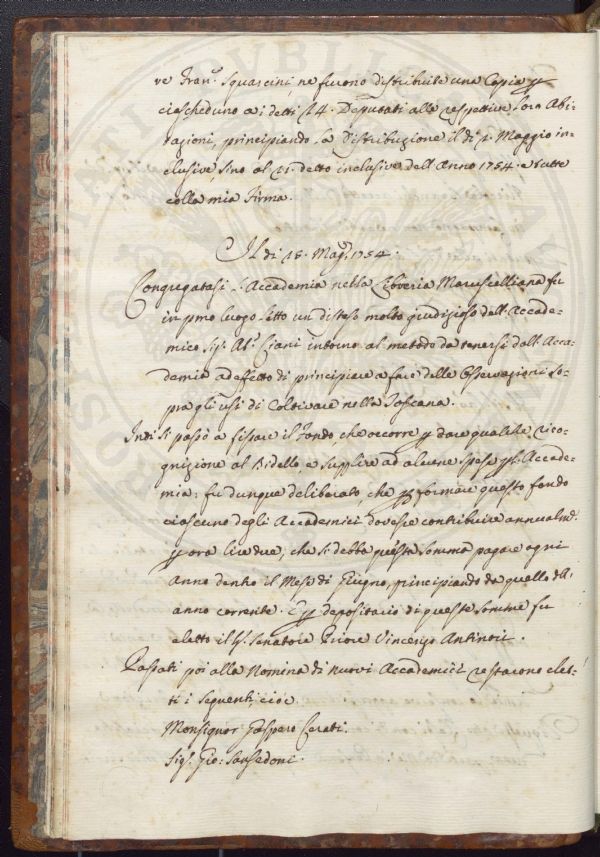 re Fran.º Squarcini ne furono distribuite una Copia p
ciascheduno a i detti 24. Deputati alle respettive loro Abi-
tazioni, principiando la distribuzione il dì 1. Maggio in-
clusive, sino al 11. detto inclusive dell'Anno 1754. e tutte
colla mia Firma.
Il dì 15. Mag.º 1754.
Congregatasi l'Accademia nella Libreria Marucelliana fu
in pmo luogo letto un disteso molto giudizioso dell'Accade-
mico Sig.r Ab.e Ciani intorno al metodo da tenersi dall'Acca-
demia ad effetto di principiare a fare delle Osservazioni so-
pra gli usi di Coltivare nella Toscana.
Indi si passò a fissare il fondo che occorre p dare qualche reco-
gnizione al Bidello, e supplire ad alcune spese p l'Accade-
mia: fu dunque deliberato, che p formare questo fondo
ciascuno degli Accademici dovesse contribuire annualm.e
p ora lire due, che si debba questa somma pagare ogni
Anno dentro il Mese di Giugno, principiando da quello dell'
anno corrente. E p depositario di queste somme fu
eletto il Sig. Senatore Priore Vincenzo Antinori.
Passati poi alla Nomina di nuovi Accademici restarono elet-
ti i seguenti, cioè.
Monsignor Gaspero Cerati.
Sig.r Gio: Sansedoni.